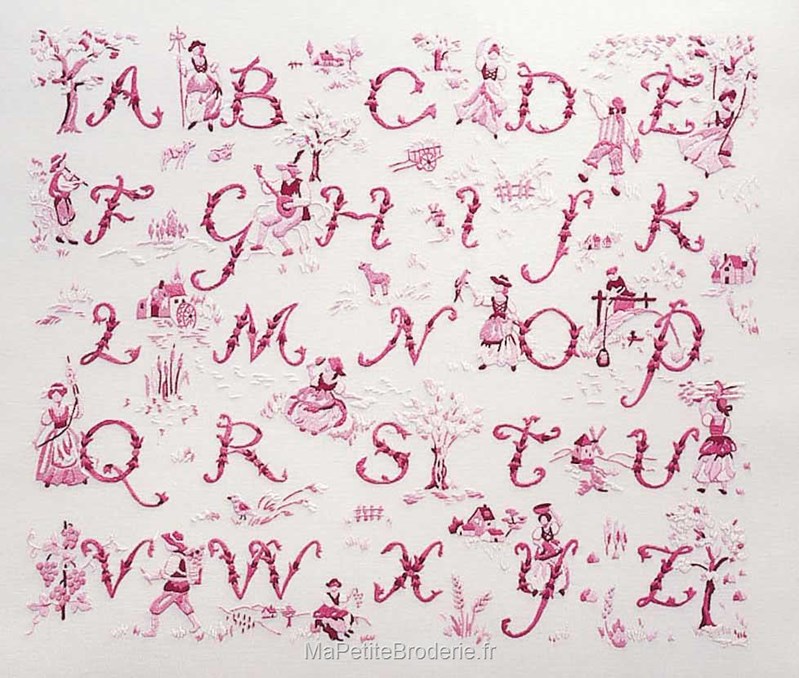 A B C D E
F G H I J K
L M N O P
Q R S T U
V W X Y Z
MaPetiteBroderie.fr